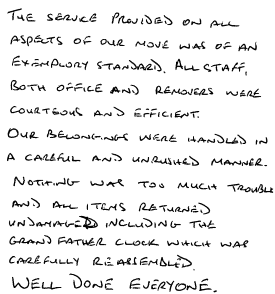 THE SERVICE PROVIDED ON ALL
ASPECTS OF OUR MOVE WAS OF AN
EXEMPLORY STANDARD. ALL STAFF,
BOTH OFFICE AND REMOVERS WERE
COURTEOUS AND EFFICIENT.
OUR BELONGINGS WERE HANDLED IN
A CAREFUL AND UNRUSHED MANNER.
NOTHING WAS TOO MUCH TROUBLE
AND ALL ITEMS RETURNED
UNDAMAGED INCLUDING THE
GRANDFATHER CLOCK WHICH WAS
CAREFULLY REASSEMBLED.
WELL DONE EVERYONE.